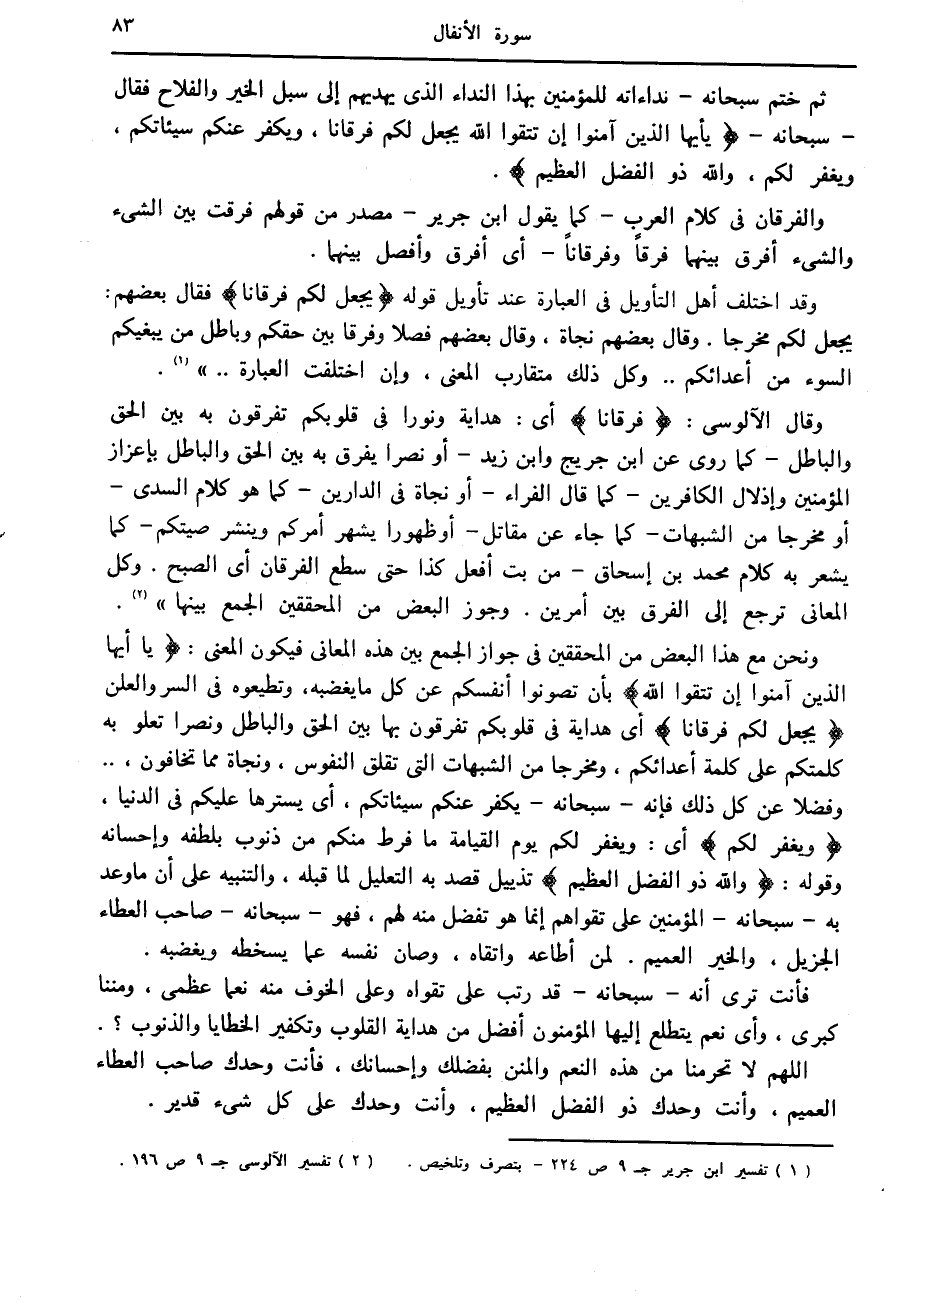 سورة الأنفال ٨٣
ثم ختم سبحانه – نداءاته للمؤمنين بهذا النداء الذى يهديهم إلى سبل الخير والفلاح فقال
– سبحانه – ﴿ يأيها الذين آمنوا إن تتقوا الله يجعل لكم فرقانا ، ويكفر عنكم سيئاتكم ،
ويغفر لكم ، والله ذو الفضل العظيم ﴾ .
والفرقان فى كلام العرب – كما يقول ابن جرير – مصدر من قولهم فرقت بين الشىء
والشىء أفرق بينهما فرقاً وفرقاناً – أى أفرق وأفصل بينهما .
وقد اختلف أهل التأويل فى العبارة عند تأويل قوله ﴿يجعل لكم فرقانا﴾ فقال بعضهم:
يجعل لكم مخرجا . وقال بعضهم نجاة ، وقال بعضهم فصلا وفرقا بين حقكم وباطل من يبغيكم
السوء من أعدائكم .. وكل ذلك متقارب المعنى ، وإن اختلفت العبارة .. » (١) .
وقال الآلوسى : ﴿ فرقانا ﴾ أى : هداية ونورا فى قلوبكم تفرقون به بين الحق
والباطل – كما روى عن ابن جريج وابن زيد – أو نصرا يفرق به بين الحق والباطل بإعزاز
المؤمنين وإذلال الكافرين – كما قال الفراء – أو نجاة فى الدارين – كما هو كلام السدى –
أو مخرجا من الشبهات– كما جاء عن مقاتل– أوظهورا يشهر أمركم وينشر صيتكم– كما
يشعر به كلام محمد بن إسحاق – من بت أفعل كذا حتى سطع الفرقان أى الصبح . وكل
المعانى ترجع إلى الفرق بين أمرين . وجوز البعض من المحققين الجمع بينها » (٢) .
ونحن مع هذا البعض من المحققين فى جواز الجمع بين هذه المعانى فيكون المعنى : ﴿ يا أيها
الذين آمنوا إن تتقوا الله﴾ بأن تصونوا أنفسكم عن كل مايغضبه، وتطيعوه فى السر والعلن
﴿ يجعل لكم فرقانا ﴾ أى هداية فى قلوبكم تفرقون بها بين الحق والباطل ونصرا تعلو به
كلمتكم على كلمة أعدائكم ، ومخرجا من الشبهات التى تقلق النفوس ، ونجاة مما تخافون ، ..
وفضلا عن كل ذلك فإنه – سبحانه – يكفر عنكم سيئاتكم ، أى يسترها عليكم فى الدنيا ،
﴿ ويغفر لكم ﴾ أى : ويغفر لكم يوم القيامة ما فرط منكم من ذنوب بلطفه وإحسانه
وقوله : ﴿ والله ذو الفضل العظيم ﴾ تذييل قصد به التعليل لما قبله ، والتنبيه على أن ماوعد
به – سبحانه – المؤمنين على تقواهم إنما هو تفضل منه لهم ، فهو – سبحانه – صاحب العطاء
الجزيل ، والخير العميم . لمن أطاعه واتقاه ، وصان نفسه عما يسخطه ويغضبه .
فأنت ترى أنه – سبحانه – قد رتب على تقواه وعلى الخوف منه نعما عظمى ، ومننا
كبرى ، وأى نعم يتطلع إليها المؤمنون أفضل من هداية القلوب وتكفير الخطايا والذنوب ؟ .
اللهم لا تحرمنا من هذه النعم والمنن بفضلك وإحسانك ، فأنت وحدك صاحب العطاء
العميم ، وأنت وحدك ذو الفضل العظيم ، وأنت وحدك على كل شىء قدير .
( ١ ) تفسير ابن جرير جـ ٩ ص ٢٢٤ – بتصرف وتلخيص . ( ٢ ) تفسير الآلوسى جـ ٩ ص ١٩٦ .